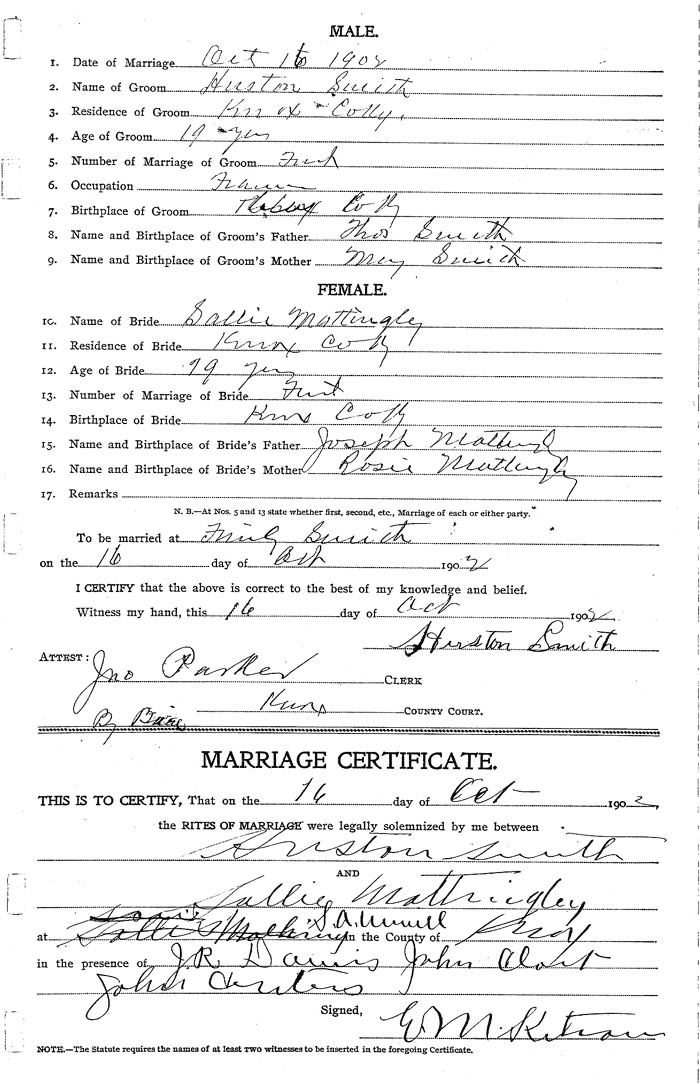 MALE.
1. Date of Marriage Oct 16 1902
2. Name of Groom Huston Smith
3. Residence of Groom Knox Co Ky.
4. Age of Groom 19 yrs
5. Number of Marriage of Groom First
6. Occupation Farmer
7. Birthplace of Groom Co Ky
8. Name and Birthplace of Groom's Father Thos Smith
9. Name and Birthplace of Groom's Mother Mary Smith
FEMALE.
10. Name of Bride Sallie Mattingley
11. Residence of Bride Knox Co Ky
12. Age of Bride 19 yrs
13. Number of Marriage of Bride First
14. Birthplace of Bride Knox Co Ky
15. Name and Birthplace of Bride's Father Joseph Mattingly
16. Name and Birthplace of Bride's Mother Rosie Mattingly
17. Remarks
N. B.—At Nos. 5 and 13 state whether first, second, etc., Marriage of each or either party.
To be married at Smith
on the 16 day of Oct 1902
I CERTIFY that the above is correct to the best of my knowledge and belief.
Witness my hand, this 16 day of Oct 1902
Huston Smith
ATTEST:
Jno Parker CLERK
By Knox COUNTY COURT.
MARRIAGE CERTIFICATE.
THIS IS TO CERTIFY, That on the 16 day of Oct 1902,
the RITES OF MARRIAGE were legally solemnized by me between
Huston Smith
AND
Sallie Mattingley
at S.A. in the County of Knox
in the presence of J.R. Davis John
John Centers
Signed,
E. M.
NOTE.—The Statute requires the names of at least two witnesses to be inserted in the foregoing Certificate.